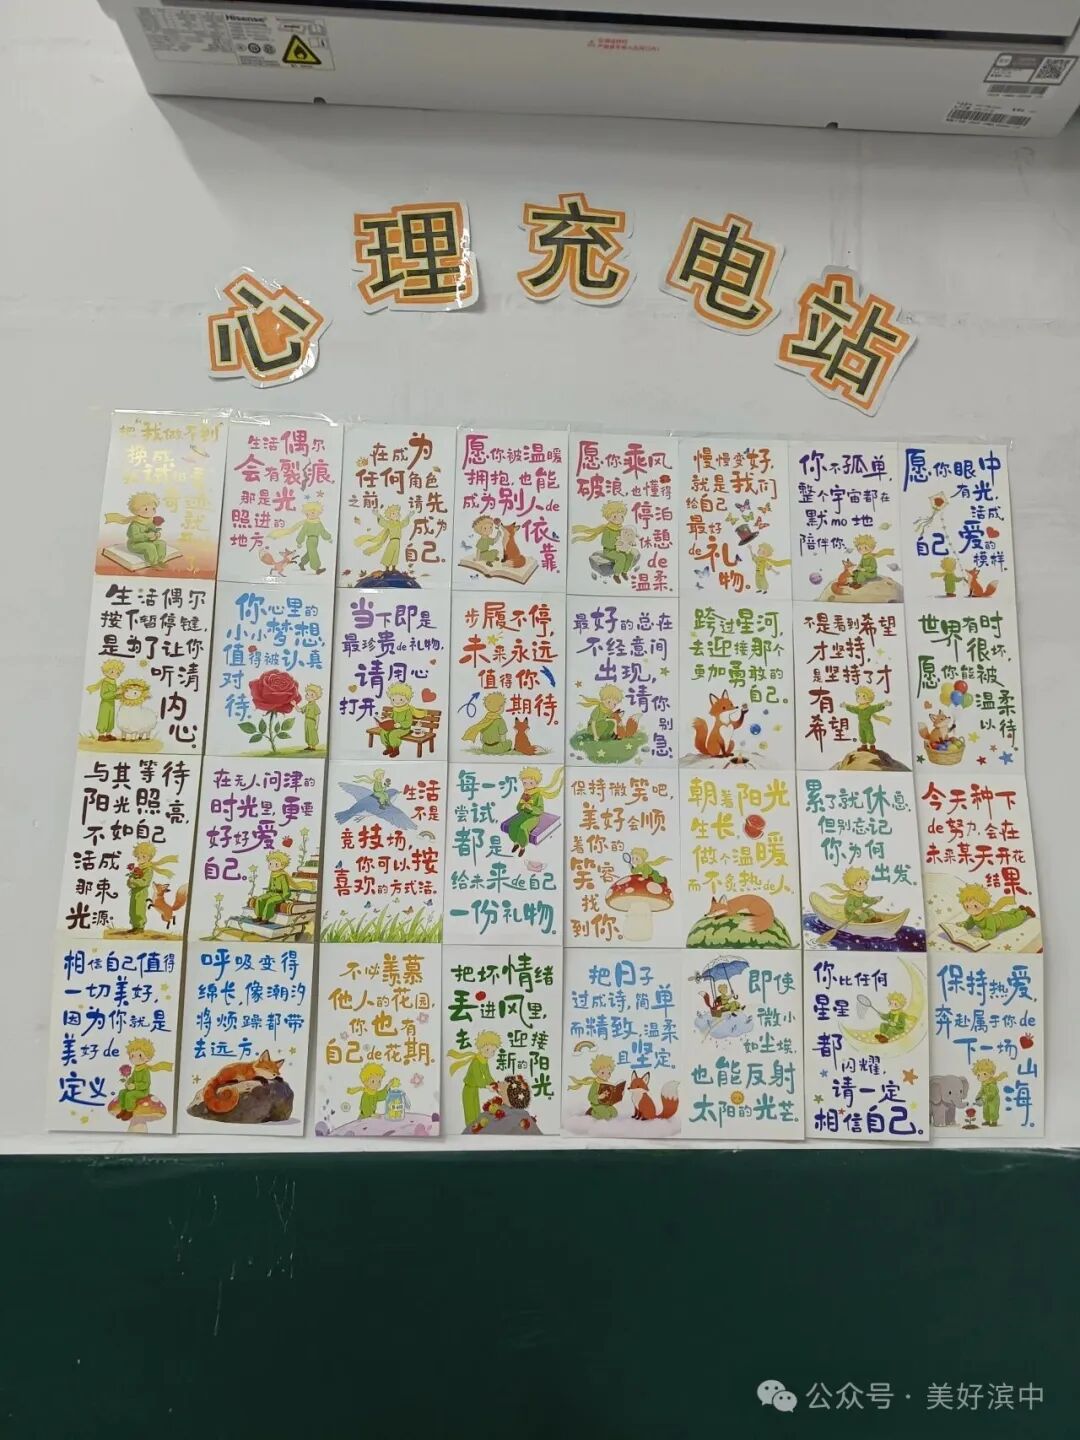 Hisense
心理充电站
把"我做不到"
换成
试
奇迹
生活偶尔
会有裂痕,
那是光
照进的
地方。
在成为
任何角色
之前,请先
成为
自己。
愿你被温暖
拥抱,也能
成为别人de
依靠。
愿你乘风
破浪,也懂得
停泊
休憩
de
温柔。
慢慢变好,
就是我们
给自己
最好
de礼
物。
你不孤单,
整个宇宙都在
默mo地
陪伴你
愿你眼中
有光,
活成
自己爱的
模样。
生活偶尔
按下暂停键,
是为了让你
听清
内
心。
你心里的
小小梦想,
值得被认真
对
待。
当下即是
最珍贵de礼物,
请用心
打开。
步履不停,
未来永远
值得你
期待。
最好的总在
不经意间
出现,
请你
别
急。
跨过星河,
去迎接那个
更加勇敢的
自己。
不是看到希望
才坚持,
是坚持了才
有
希望。
世界有时
很坏,
愿你能被
温柔
以待。
与其等待
阳光照亮,
不如自己
活成
那束
光源。
在无人问津的
时光里,更要
好好爱
自己。
生活
不是
竞技场,
你可以按
喜欢的方式活。
每一次
尝试,
都是
给未来de自己
一份礼物。
保持微笑吧,
美好会顺
着你的
笑容
找
到你。
朝着阳光
生长,
做个温暖
而不炙热de人。
累了就休息,
但别忘记
你为何
出发。
今天种下
de努力,会在
未来某天开花
结果
相信自己值得
一切美好,
因为你就是
美好de
定义。
呼吸变得
绵长,像潮汐
将烦躁都带
去远方。
不必羡慕
他人的花园,
你也有
自己de花期。
把坏情绪
丢进风里,
去迎接
新的阳
光。
把日子
过成诗,简单
而精致,温柔
且坚定。
即使
微小
如尘埃,
也能反射
太阳的光芒。
你比任何
星星
都
闪耀,
请一定
相信自己。
保持热爱,
奔赴属于你de
下一场
山
海。
公众号·美好滨中